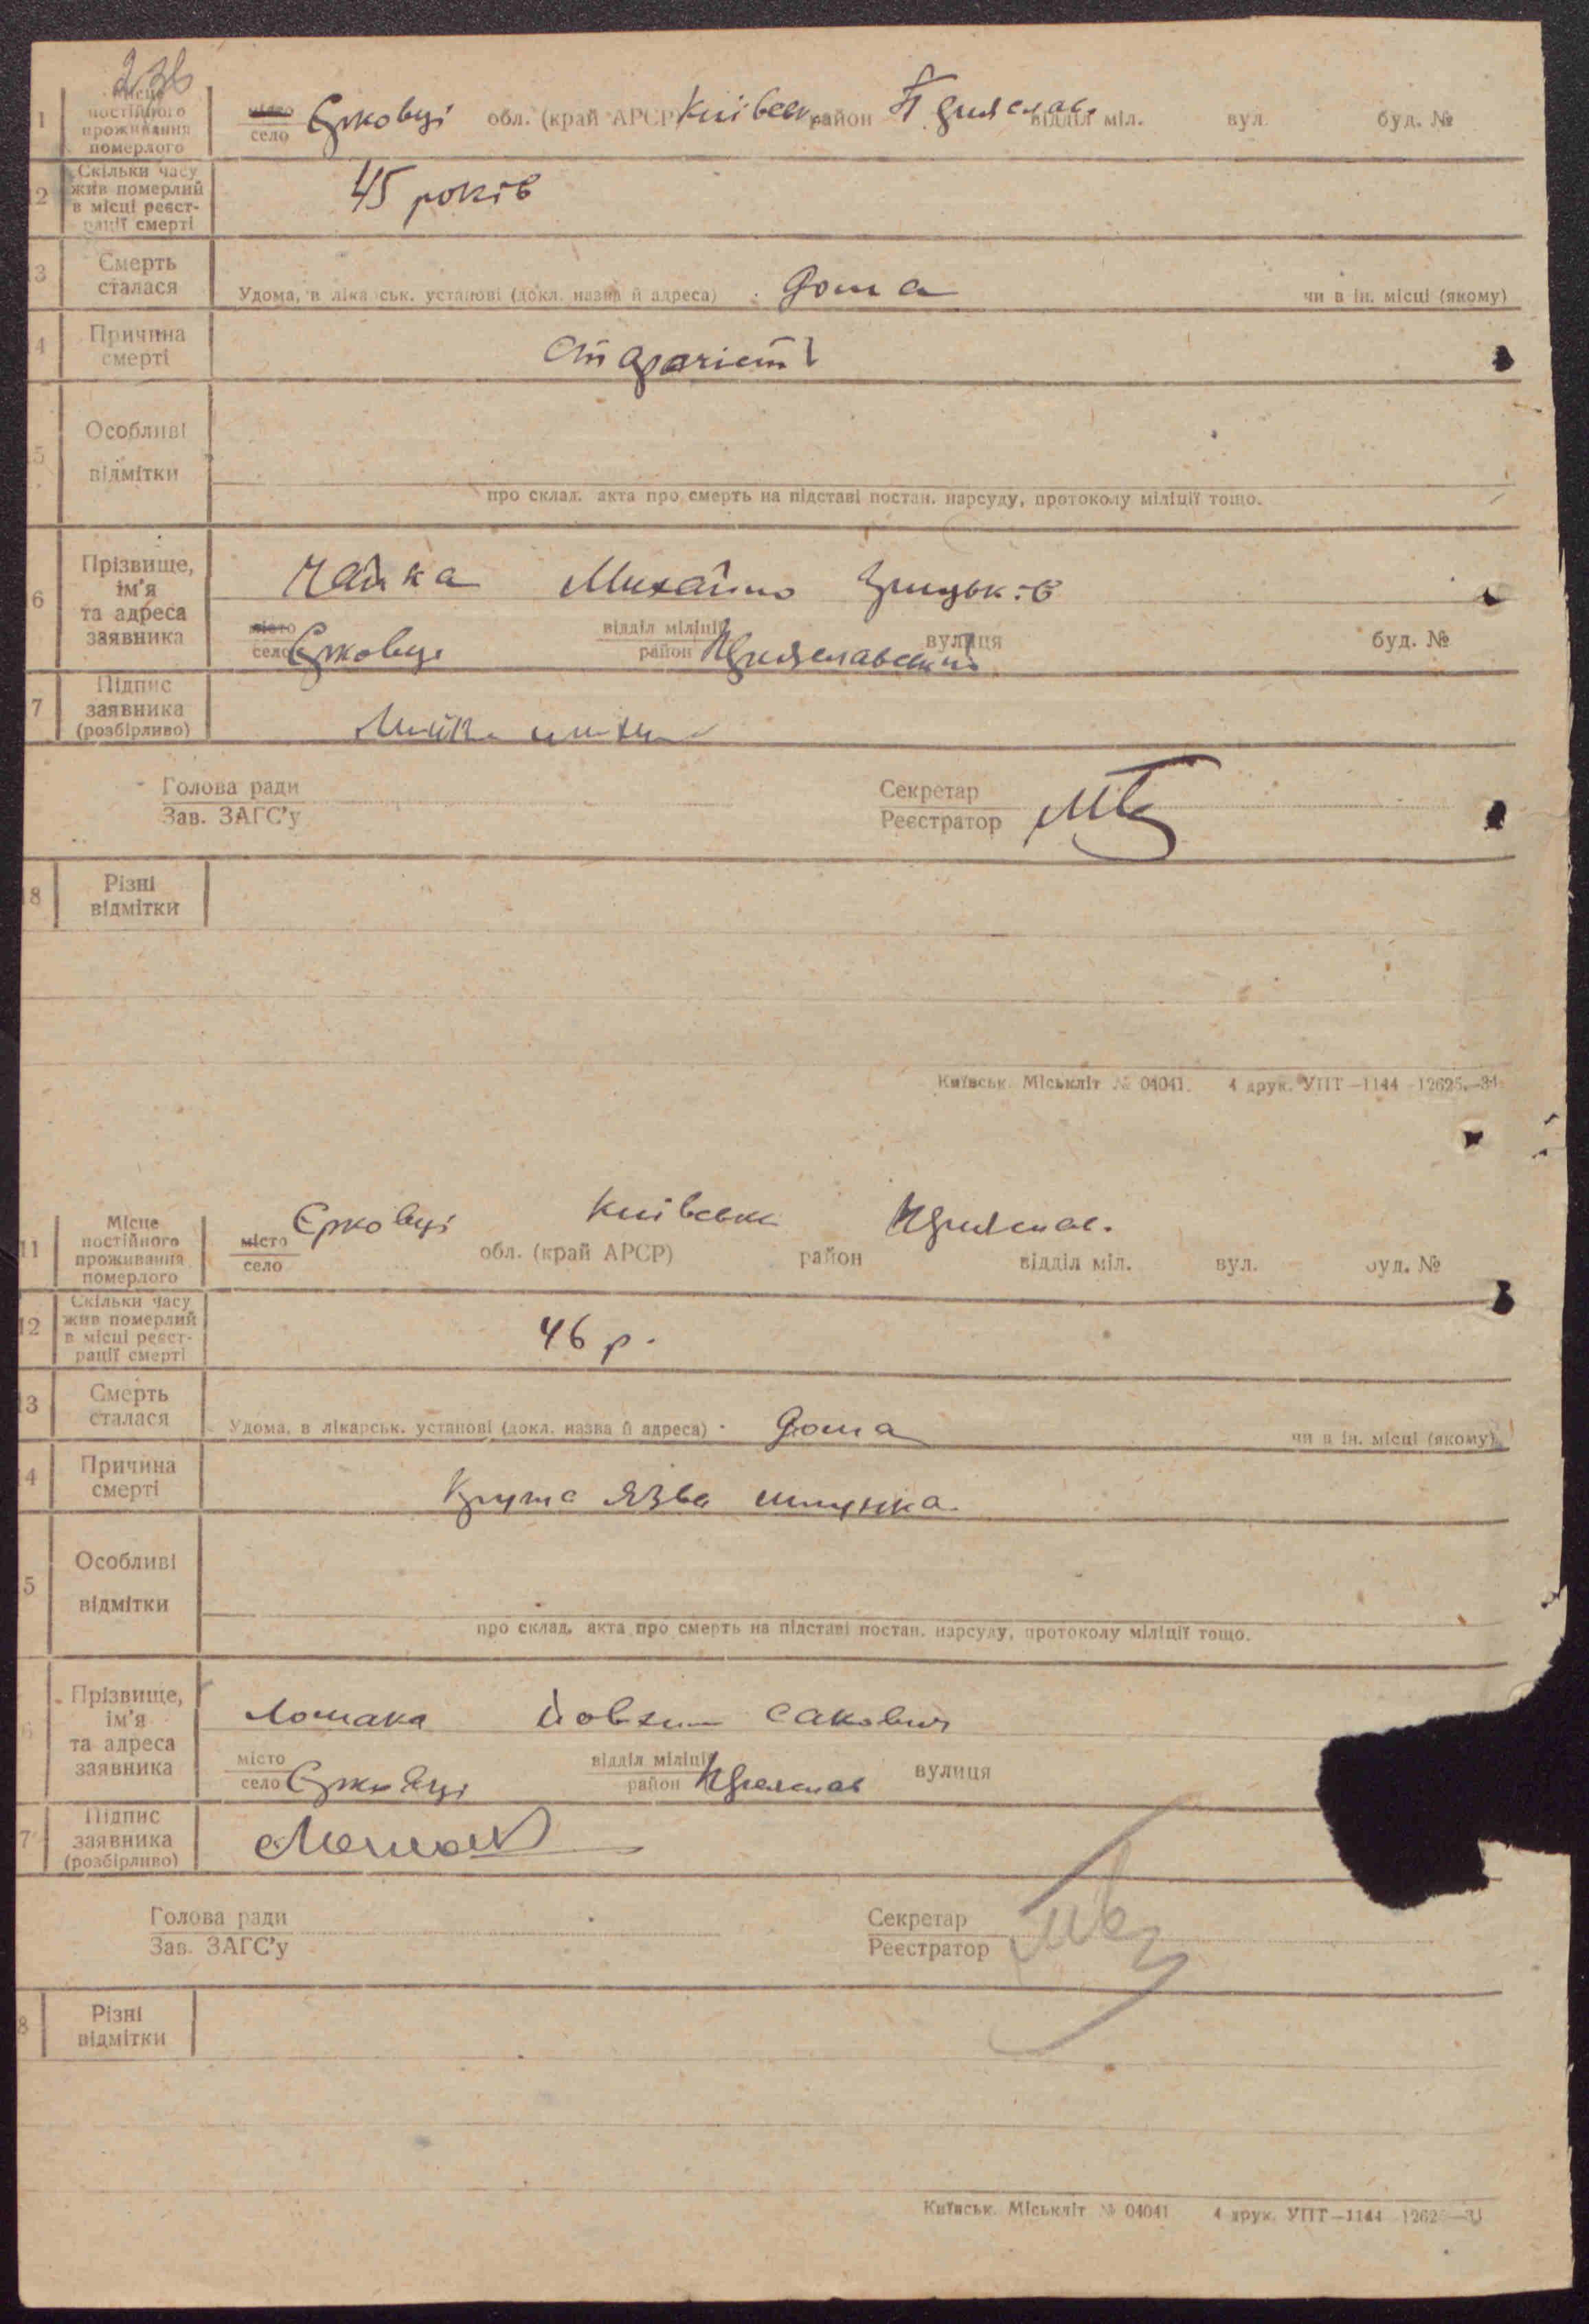 236
11 Місце постійного проживання померлого
місто село Єрковці обл. (край АРСР) Київськ район Переяслав. відділ міл. вул. буд. №
12 Скільки часу жив померлий в місці реєстрації смерті
45 років
13 Смерть сталася
Удома, в лікарськ. установі (докл. назва й адреса) Дома чи в ін. місці (якому)
14 Причина смерті
Старість
15 Особливі відмітки
про склад. акта про смерть на підставі постан. нарсуду, протоколу міліції тощо.
16 Прізвище, ім'я та адреса заявника
Чайка Михайло Грицьків
місто село Єрковці відділ міліції район Переяславський вулиця буд. №
17 Підпис заявника (розбірливо)
Голова ради Секретар
Зав. ЗАГС'у Реєстратор
18 Різні відмітки
Київськ. Міськліт № 04041. 4 друк. УПТ—1144—12625.—31
11 Місце постійного проживання померлого
місто село Єрковці обл. (край АРСР) Київська район Переяслав. відділ міл. вул. буд. №
12 Скільки часу жив померлий в місці реєстрації смерті
46 р.
13 Смерть сталася
Удома, в лікарськ. установі (докл. назва й адреса) Дома чи в ін. місці (якому)
14 Причина смерті
язва шлунка
5 Особливі відмітки
про склад. акта про смерть на підставі постан. нарсуду, протоколу міліції тощо.
6 Прізвище, ім'я та адреса заявника
Ломака Йовхим Сакович
місто село Єрковці відділ міліції район Переяслав вулиця
7 Підпис заявника (розбірливо)
Голова ради Секретар
Зав. ЗАГС'у Реєстратор
8 Різні відмітки
Київськ. Міськліт № 04041 4 друк. УПТ—1144 12625—31